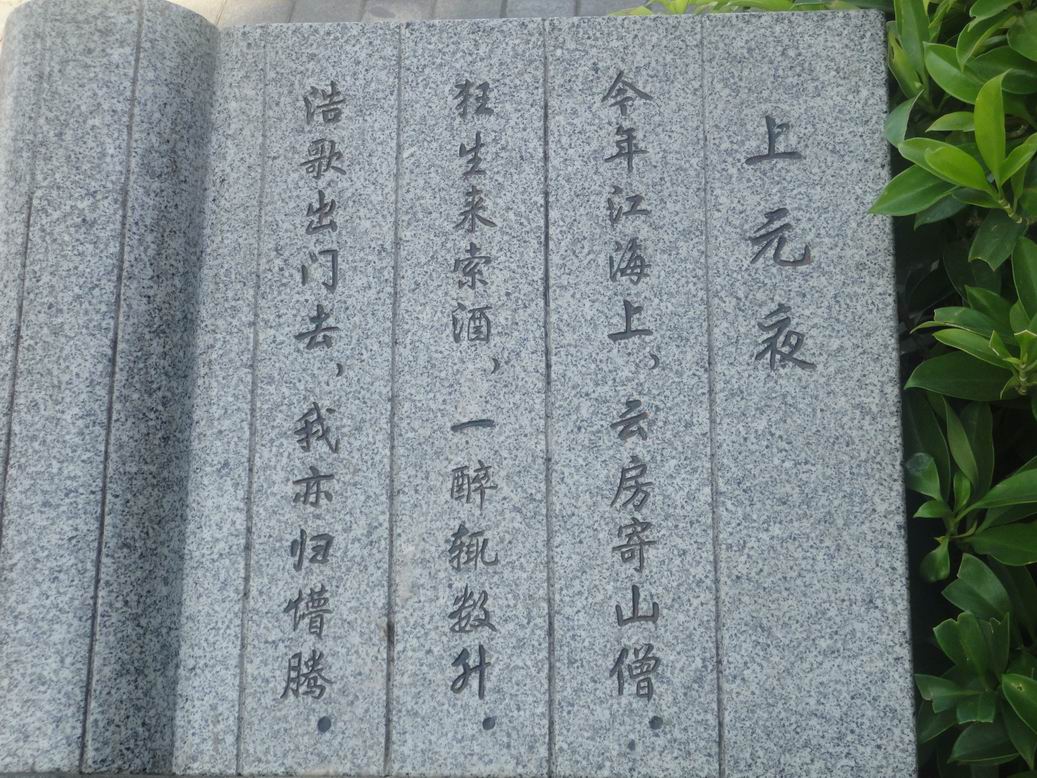 上元夜
今年江海上，云房寄山僧。
狂生来索酒，一醉辄数升。
浩歌出门去，我亦归懵腾。